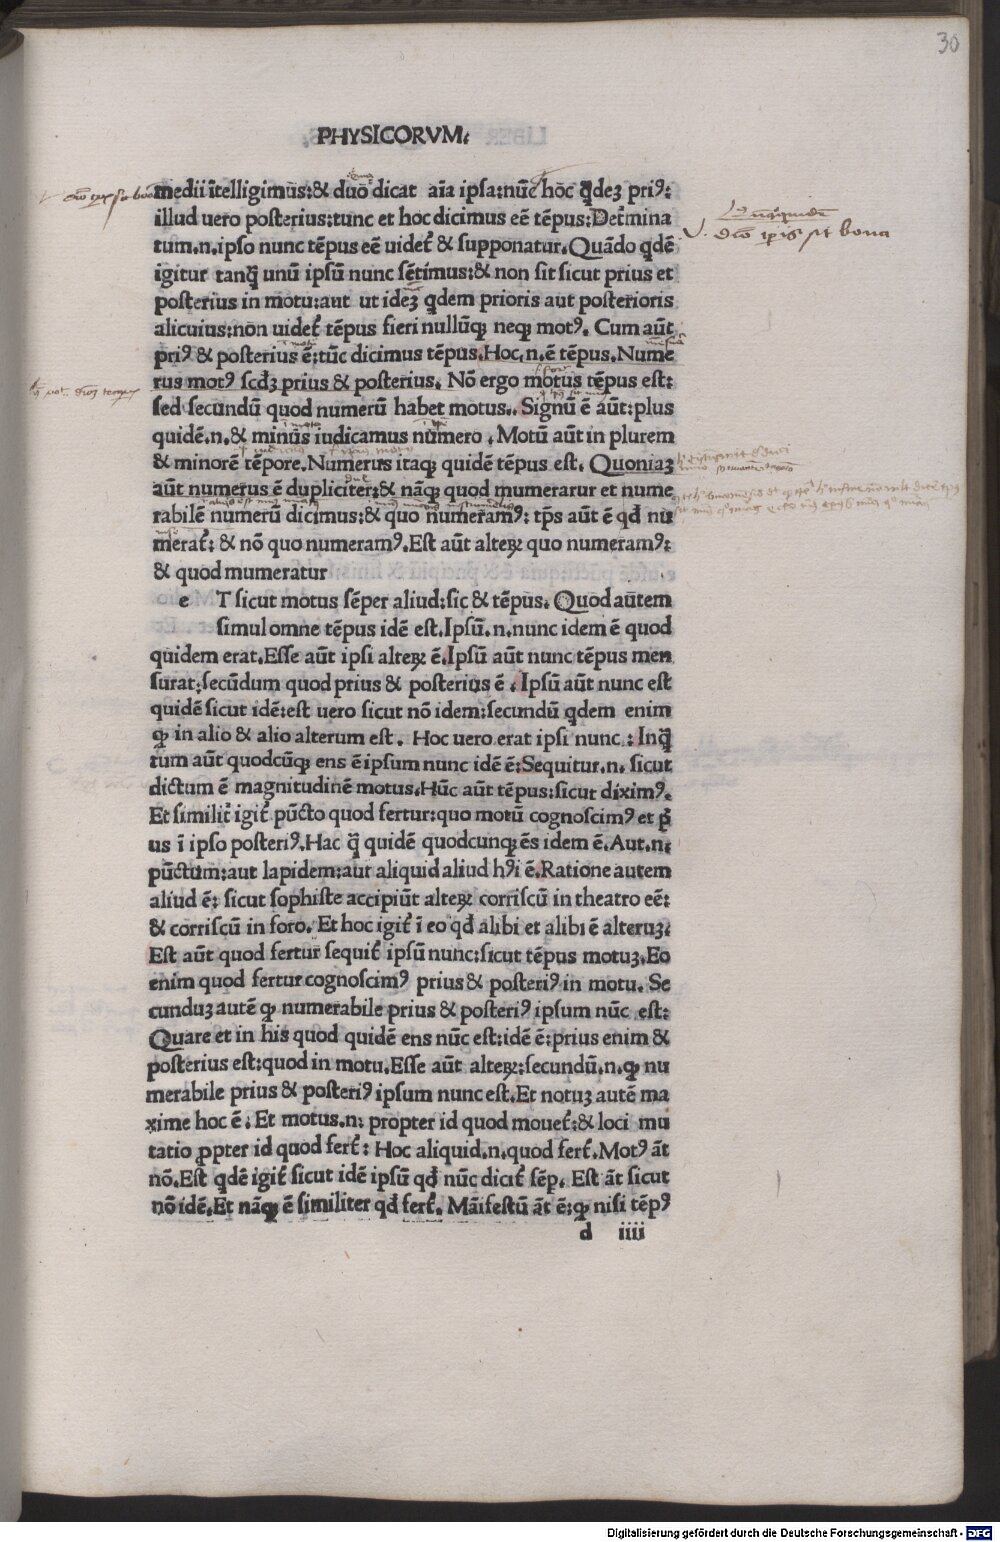 30
PHYSICORVM.
medii ītelligimus:& duo dicat aīa ipsa:nūc hoc qͥdeꝫ priꝰ:
illud uero posterius:tunc et hoc dicimus eē tēpus:Deťmina
tum.n.ipso nunc tēpus eē uideť & supponatur.Quādo qdē
igitur tanq̄ unū ipsū nunc sētimus:& non sit sicut prius et
posterius in motu:aut ut ideꝫ qͥdem prioris aut posterioris
alicuius:non uideť tēpus fieri nullūqꝫ neqꝫ motꝰ. Cum aūt
priꝰ & posterius ē:tūc dicimus tēpus.Hoc.n.ē tēpus.Nume
rus motꝰ scdꝫ prius & posterius. Nō ergo motus tēpus est:
sed secundū quod numerū habet motus.. Signū ē aūt:plus
quidē.n.& minus iudicamus numero . Motū aūt in plurem
& minorē tēpore.Numerus itaqꝫ quidē tēpus est. Quoniaꝫ
aūt numerus ē dupliciter:& nāqꝫ quod mumerarur et nume
rabilē numerū dicimus:& quo numeramꝰ: tp̄s aūt ē qđ nu
merať: & nō quo numeramꝰ.Est aūt alteꝝ quo numeramꝰ:
& quod mumeratur
e T sicut motus sēper aliud:sic & tēpus. Quod autem
simul omne tēpus idē est.Ipsū.n.nunc idem ē quod
quidem erat.Esse aūt ipsi alteꝝ ē.Ipsū aūt nunc tēpus men
surat:secūdum quod prius & posterius ē . Ipsū aūt nunc est
quidē sicut idē:est uero sicut nō idem:secundū qdem enim
ꝙ in alio & alio alterum est. Hoc uero erat ipsi nunc : Inq̄
tum aūt quodcūqꝫ ens ē ipsum nunc idē ē:Sequitur.n. sicut
dictum ē magnitudinē motus.Hūc aūt tēpus:sicut diximꝰ.
Et similiť igiť pūcto quod fertur:quo motū cognoscimꝰ et p̄
us ī ipso posteriꝰ.Hac q̄ quidē quodcunqꝫ ēs idem ē.Aut.n.
pūctum:aut lapidem:aut aliquid aliud hꝰi ē.Ratione autem
aliud ē: sicut sophiste accipiūt alteꝝ corriscū in theatro eē:
& corriscū in foro. Et hoc igiť ī eo qđ alibi et alibi ē alteruꝫ.
Est aūt quod fertur sequiť ipsū nunc:sicut tēpus motuꝫ.Eo
enim quod fertur cognoscimꝰ prius & posteriꝰ in motu. Se
cunduꝫ autē ꝙ numerabile prius & posteriꝰ ipsum nūc est:
Quare et in his quod quidē ens nūc est:idē ē:prius enim &
posterius est:quod in motu.Esse aūt alteꝝ:secundū.n.ꝙ nu
merabile prius & posteriꝰ ipsum nunc est.Et notuꝫ autē ma
xime hoc ē. Et motus.n. propter id quod moueť:& loci mu
tatio ꝓpter id quod ferť: Hoc aliquid.n.quod ferť.Motꝰ āt
nō.Est qdē igiť sicut idē ipsū qđ nūc diciť sēp. Est āt sicut
nō idē.Et nāqꝫ ē similiter qđ ferť. Māifestū āt ē:ꝙ nisi tēpꝰ
d iiii
Digitalisierung gefördert durch die Deutsche Forschungsgemeinschaft - DFG